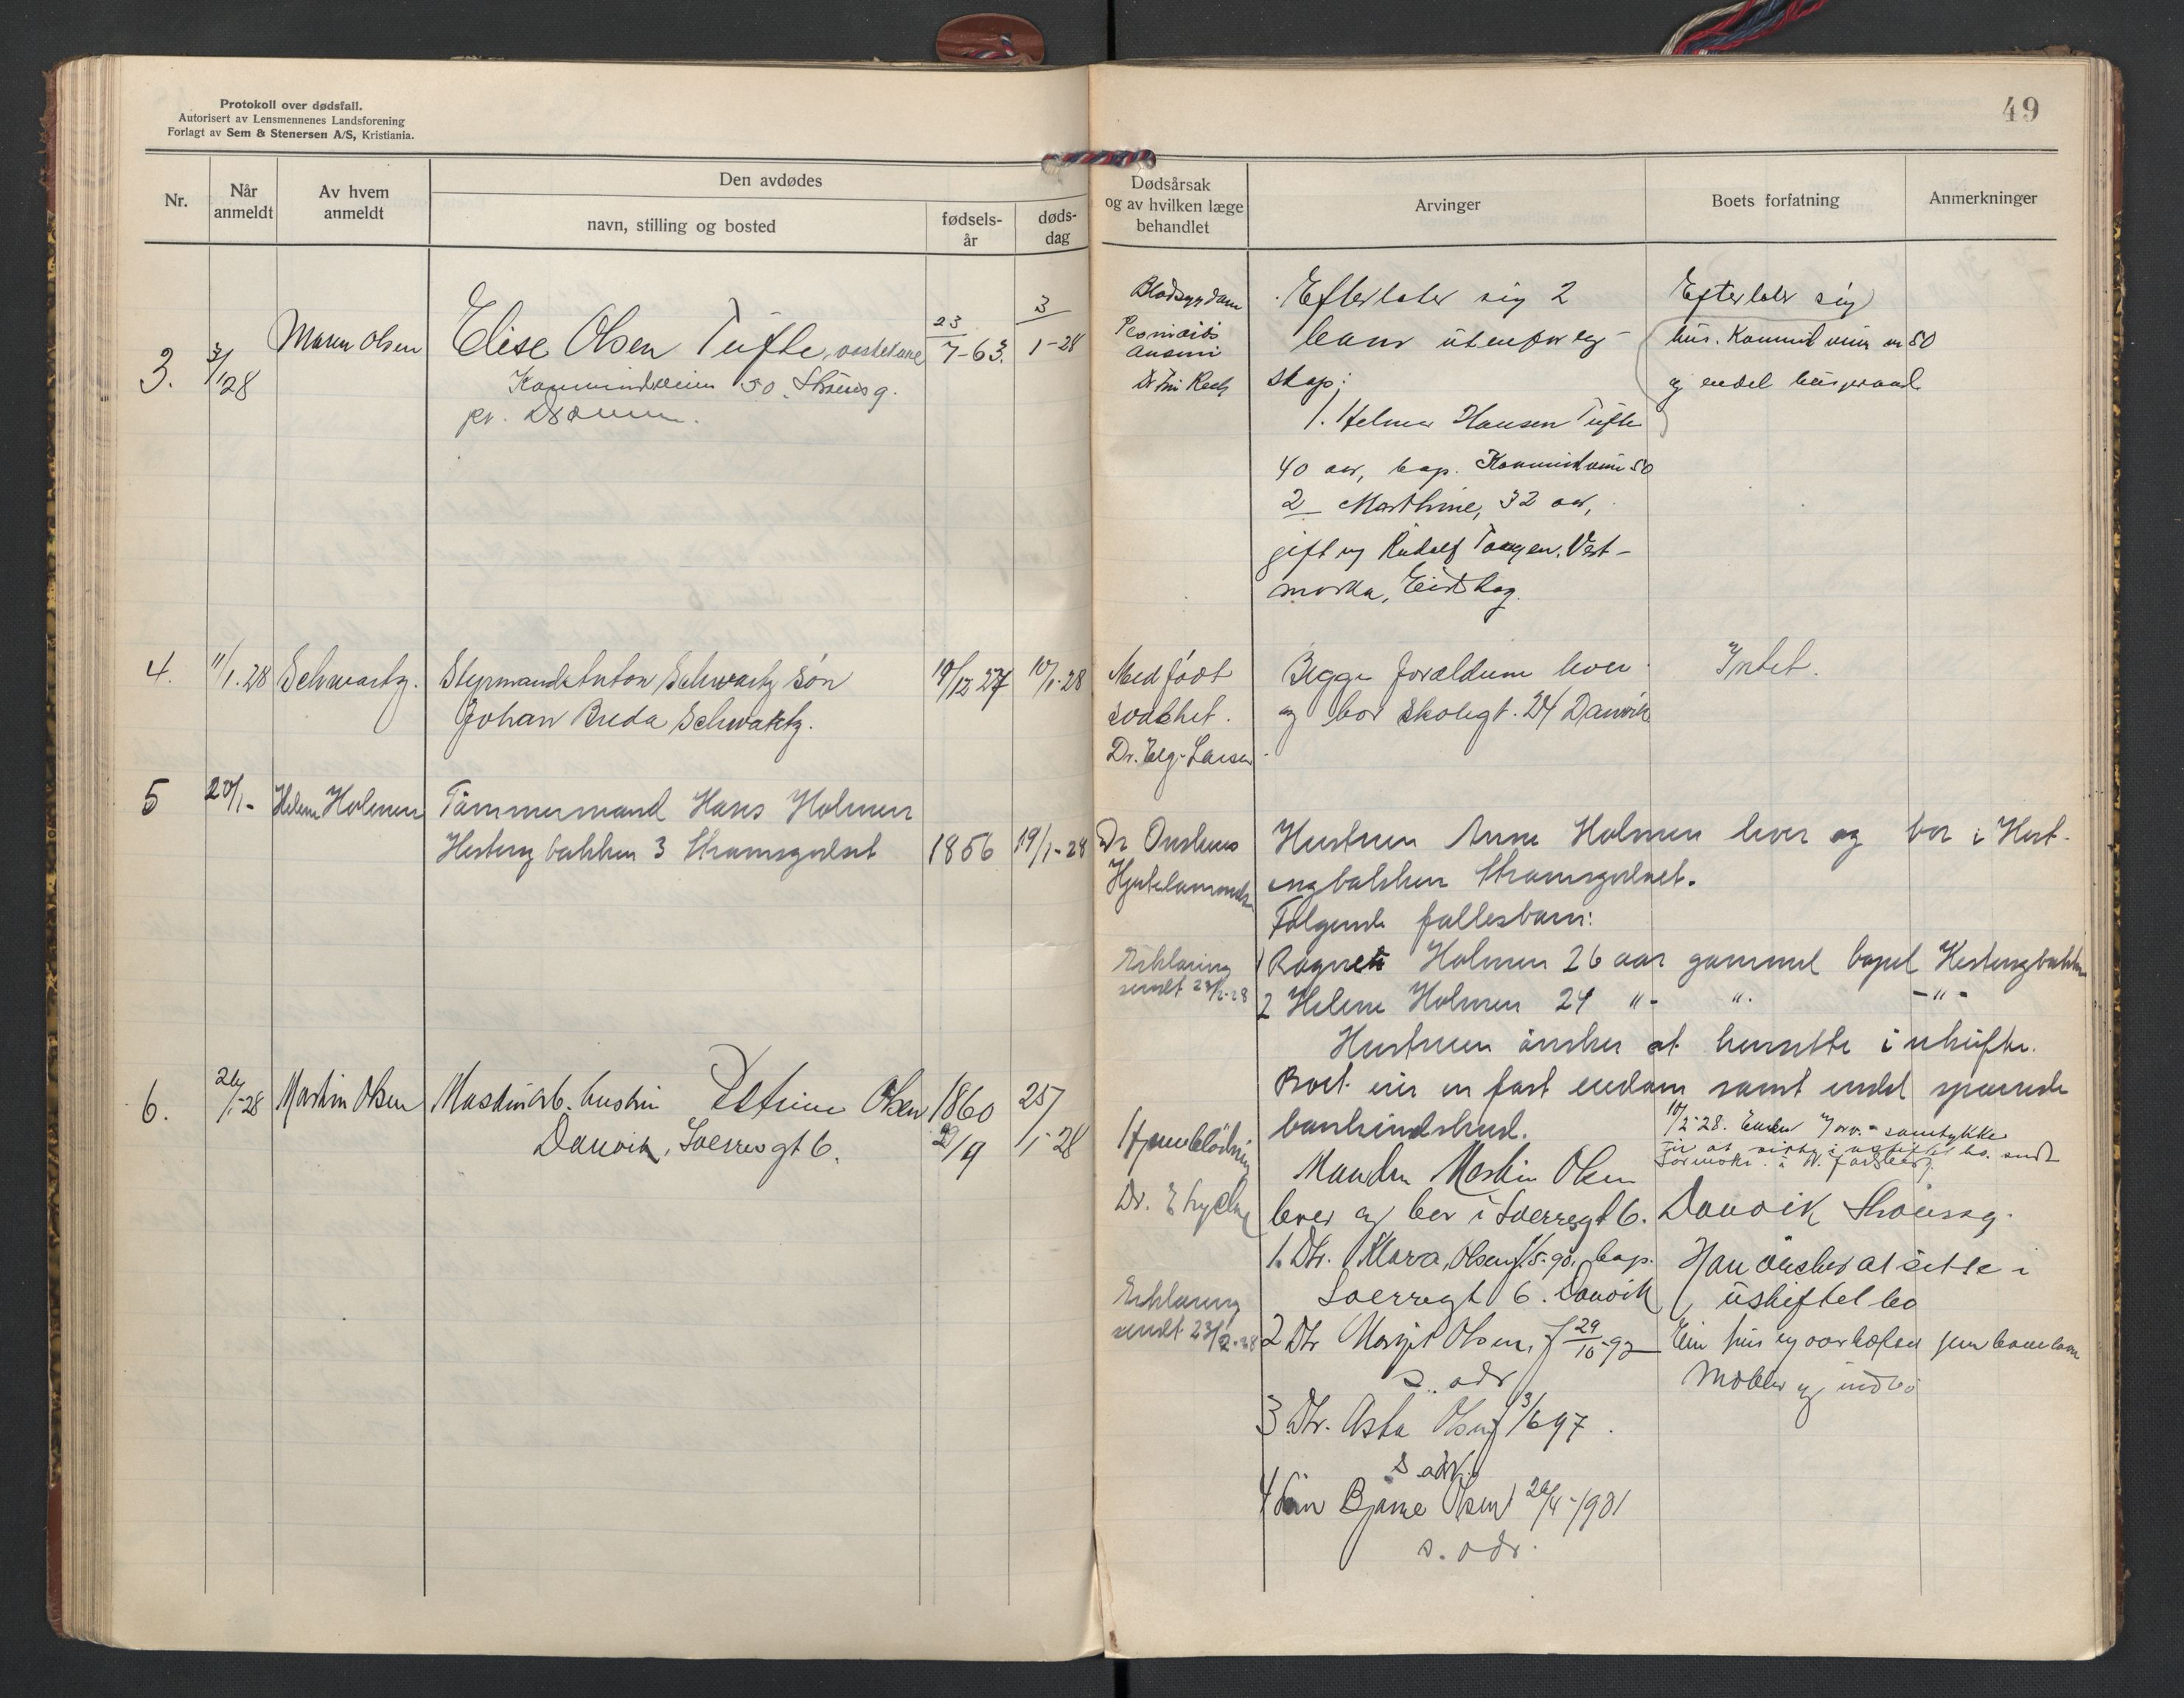 Protokoll over dødsfall.
Autorisert av Lensmennenes Landsforening
Forlagt av Sem & Stenersen A/S, Kristiania.
49
Nr.
Når anmeldt
Av hvem anmeldt
Den avdødes
navn, stilling og bosted
fødsels-år
døds-dag
Dødsårsak og av hvilken læge behandlet
Arvinger
Boets forfatning
Anmerkninger
3.
3/1 28
Maren Olsen
Elise Olsen Tufte,
50. Strømsg.
pr. Drammen.
23/7-63.
3/1-28
Blodsygdom
Efterlater sig 2
barn utenfor eg-
skap:
1. Helmer Hansen Tufte
40 aar, bop. 50
2 Marthine, 32 aar,
gift m Rudolf Tangen, Vest-
marka, Eidskog.
Efterlater sig
hus. 50
og endel
4.
11/1.28
Schwartz.
Styrmand Anton Schwartz søn
Johan Breda Schwartz.
19/12 27
10/1-28
Medfödt
svakhet.
Dr. Elg-Larsen
Begge forældrene lever
og bor Skolegt. 24 Danvik
Intet.
5
20/1-
Helene Holmen
Tömmermand Hans Holmen
Hestengbakken 3 Strømsgodset
1856
19/1-28
Dr Onshuus
Hustruen Anna Holmen lever og bor i Hest-
engbakken Strømsgodset.
Følgende fellesbarn:
1 Holmen 26 aar gammel bopel Hestengbakken
2 Helene Holmen 24 "- ". -"-
Hustruen ønsker at hensitte i uskifte.
Boet eier en fast eiendom samt endel sparede
bankindskud.
Erklæring
sendt 23/2-28
6.
26/1-28
Martin Olsen
Maskinarb. hustru Petrine Olsen
Danvik, Sverresgt 6.
1860
/9
25/1-28
Hjerneblödning
Dr.
Erklæring
sendt 23/2-28
Manden Martin Olsen
lever og bor i Sverresgt 6.
Danvik Strömsg.
1. Dtr. Klara, Olsen f. /5-90, bop.
Sverresgt 6. Danvik
2 Dtr Margit Olsen, f 29/10-92
s. adr
3 Dtr. Asta Olsen f 3/6 97.
s adr.
4 Sön Bjarne Olsen 29/4-1901
s. adr.
10/2-28. samtykke
Han önsker at sitte i
uskiftet bo
Eier hus og
Møbler og indbo